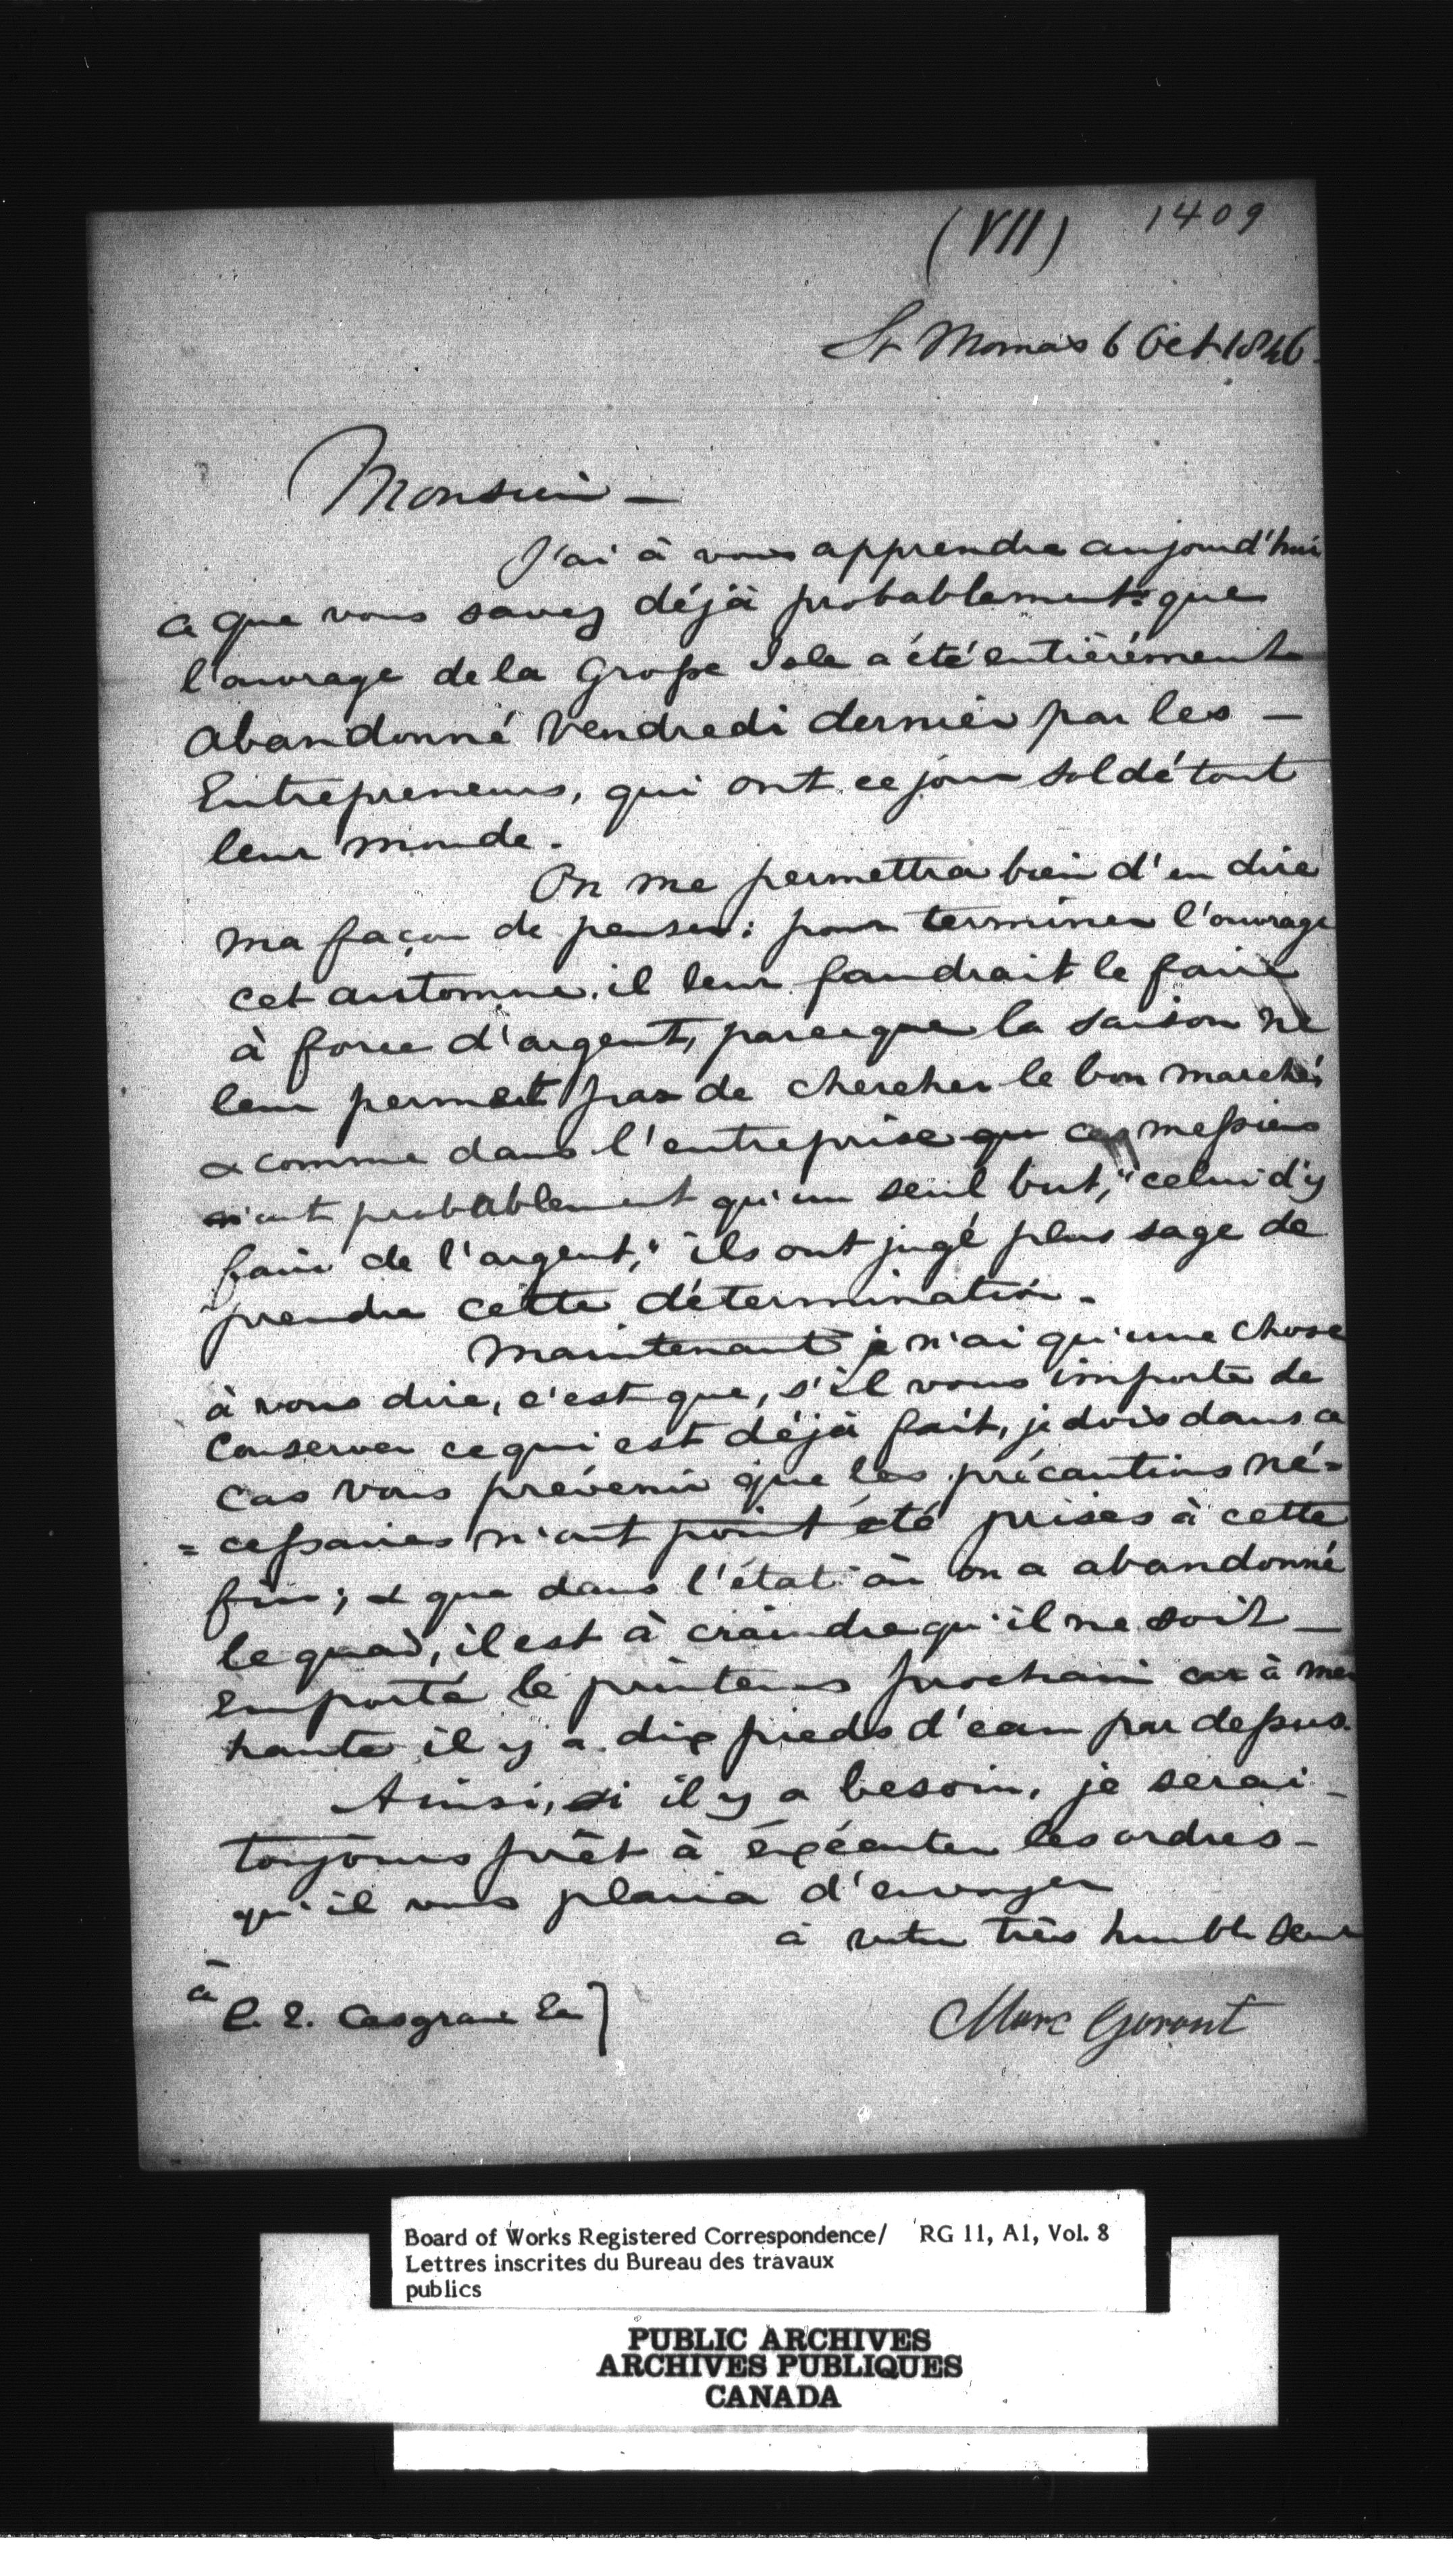 (VII) 1409
St Thomas 6 Oct 1846.
Monsieur —
J'ai à vous apprendre aujourd'hui
ce que vous savez déjà probablement: que
l'ouvrage de la Grosse Isle a été entièrément
abandonné Vendredi dernier par les —
Entrepreneurs, qui ont ce jour soldé tout
leur monde.
On me permettra bien d'en dire
ma façon de penser: pour terminer l'ouvrage
cet automne, il leur faudrait le faire
à force d'argent, parceque la saison ne
leur permet pas de chercher le bon marché;
& comme dans l'entreprise que ces messieurs
n'ont probablement qu'un seul but, "celui d'y
faire de l'argent," ils ont jugé plus sage de
prendre cette détermination.
Maintenant je n'ai qu'une chose
à vous dire, c'est que, s'il vous importe de
conserver ce qui est déjà fait, je dois dans ce
cas vous prévenir que les précautions né=
=cessaires n'ont point été prises à cette
fin; & que dans l'état où on a abandonné
le quai, il est à craindre qu'il ne soit —
emporté le printems prochain car à mer
haute il y a dix pieds d'eau par dessus.
Ainsi, si il y a besoin, je serai —
toujours prêt à éxécuter les ordres —
qu'il vous plaira d'envoyer
à votre très humble Servr
à
C. E. Casgrain Er
Marc Garant
Board of Works Registered Correspondence/ RG 11, A1, Vol. 8
Lettres inscrites du Bureau des travaux
publics
PUBLIC ARCHIVES
ARCHIVES PUBLIQUES
CANADA